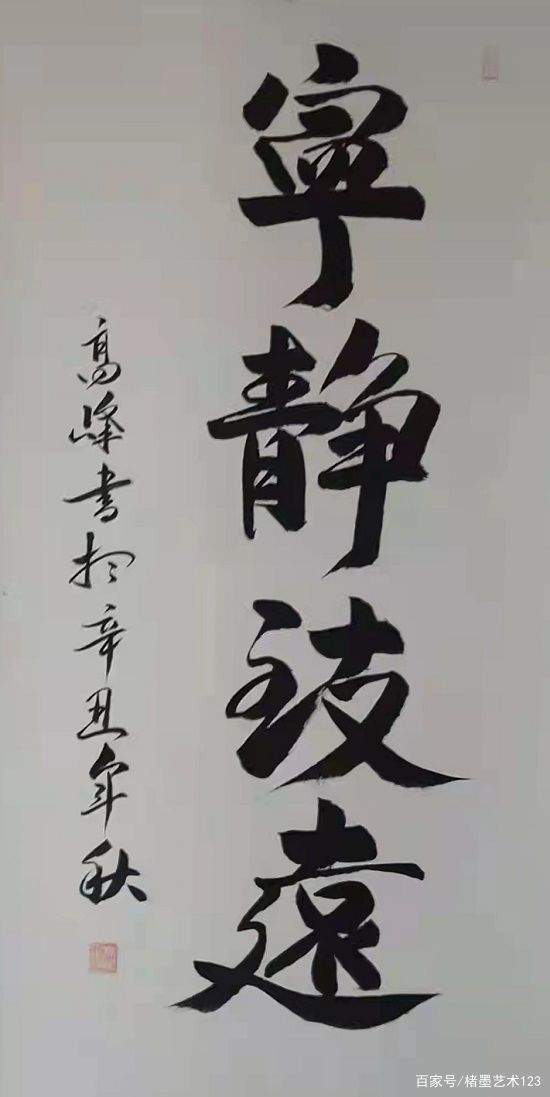 寧静致遠
高峰书於辛丑年秋
百家号/楮墨艺术123